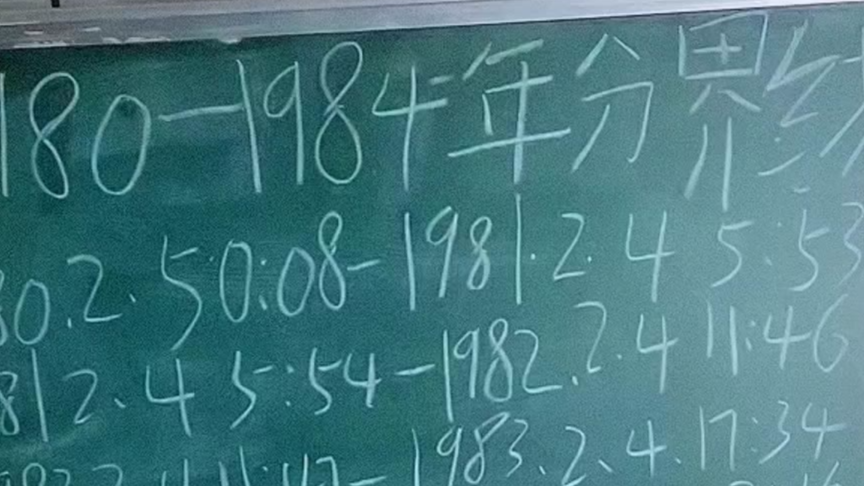 180-1984年分界线
80.2.5 0:08-1981.2.4 5:53
81 2.4 5:54-1982.2.4 11:46
1983.2.4.17:34